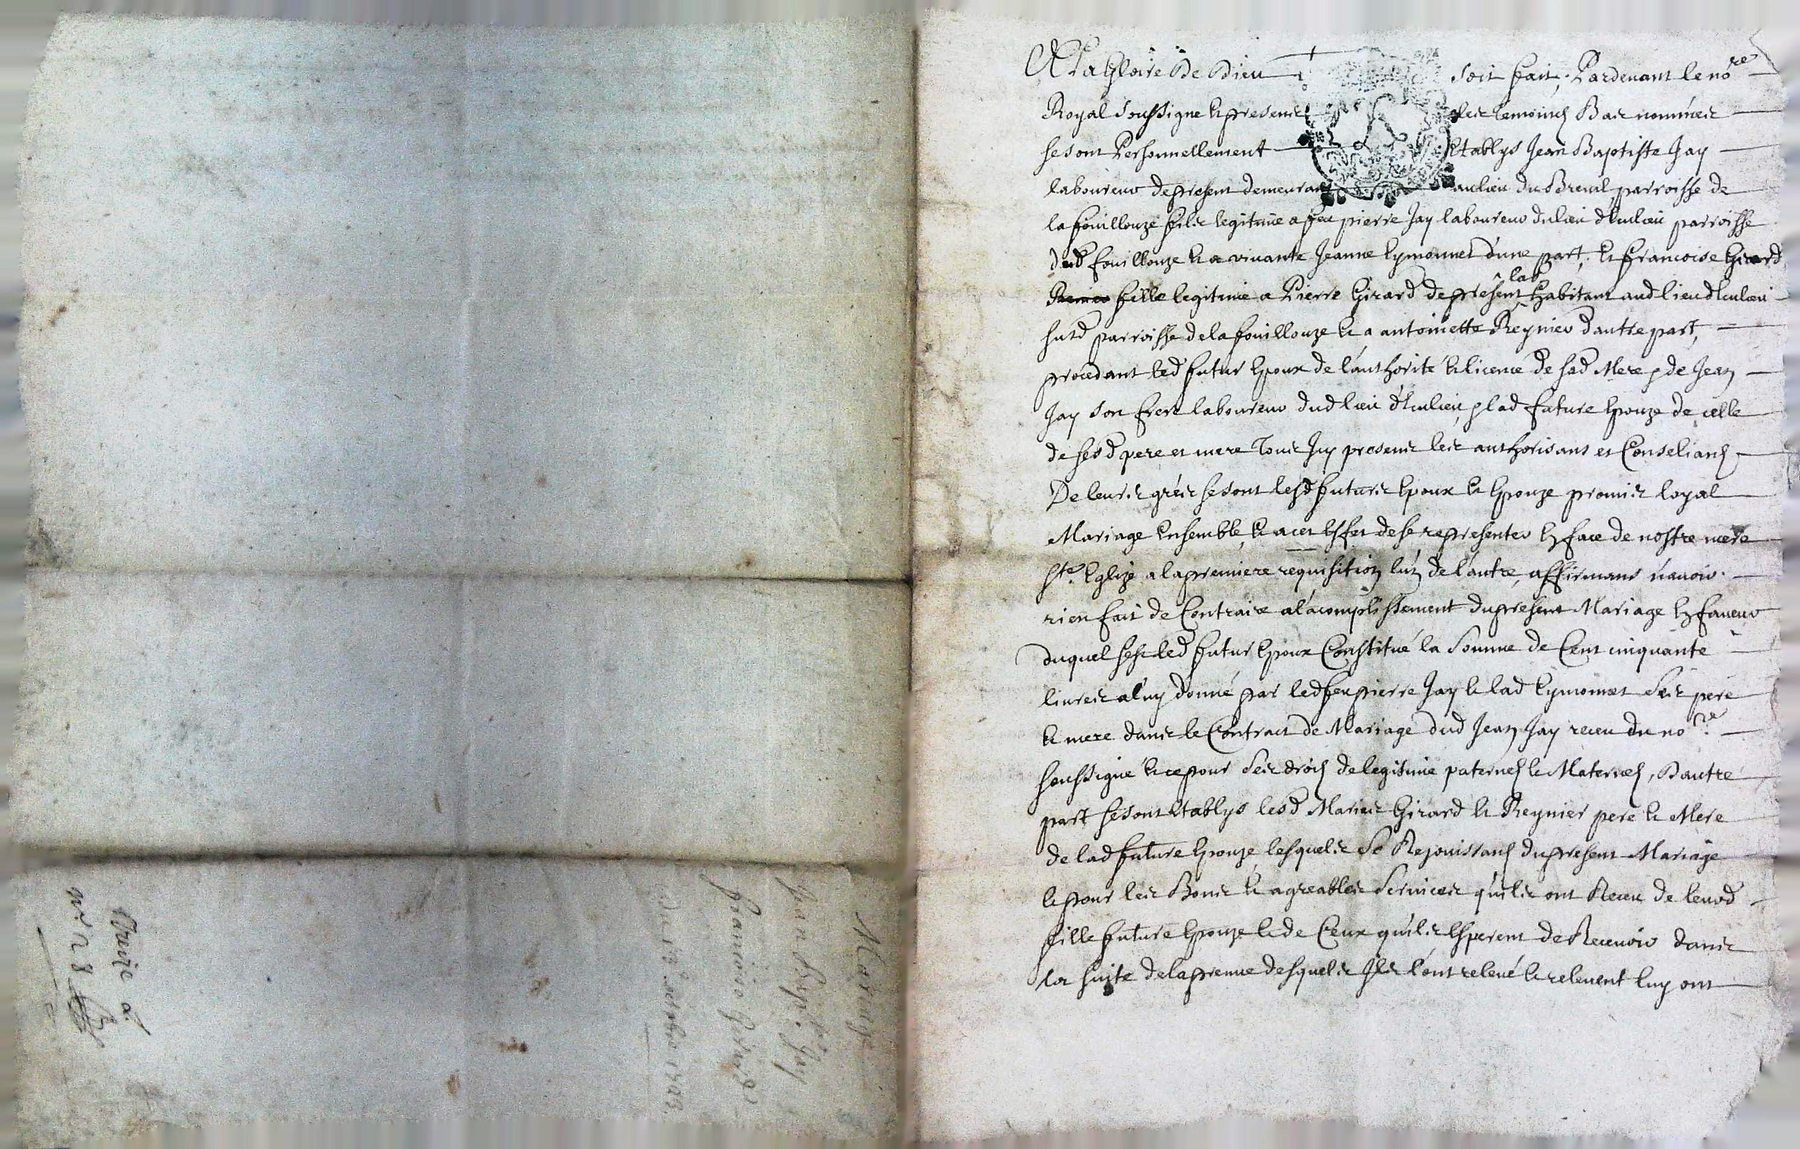 Mariage
Jean Bapt.te Jay
francoise Girard
du 13 octobre 1723.
Cotte 2.
nos 28
A La Gloire de Dieu soit fait, Pardevant le no.re
Royal soussigne & presents les temoins Bas nommés
se sont Personnellement Etablys Jean Baptiste Jay
laboureur de present demeurant au lieu du Breuil parroisse de
la fouillouze fils legitime a feu pierre Jay laboureur du lieu d'Eculieu parroisse
dud fouillouze & a vivante Jeanne Eymonnet d'une part, & francoise Girard
fille legitime a Pierre Girard de present lab habitant aud lieu d'Eculieu
susd parroisse de la fouillouze & a antoinette Reynier d'autre part,
procedant led futur Epoux de l'authorité & licence de sad Mere & de Jean
Jay son frere laboureur dud lieu d'Eculieu, & lad future Epouze de celle
de sesd pere et mere Tous Jcy presents les authorisans et Conselians
De leurs grés se sont lesd futurs Epoux & Epouze promis loyal
Mariage Ensemble, & a cet Effet de se representer En face de nostre mere
Ste. Eglize a la premiere requisition l'un de l'autre, affirmans n'avoir
rien fait de Contraire a l'acomplissement du present Mariage En faveur
duquel s'est led futur Epoux Constitué la Somme de Cent cinquante
livres a luy donné par led feu pierre Jay & lad Eymonnet Ses pere
& mere dans le Contract de Mariage dud Jean Jay receu du no.re
soussigné & ce pour Ses droits de legitime paternels & Maternels, D'autre
part se sont Etablys lesd Mariés Girard & Reynier pere & Mere
de lad future Epouze lesquels Se Rejouissans du present Mariage
& pour les Bons & agreables Services qu'ils ont Receu de leurd
fille future Epouze & de Ceux qu'ils Esperent de Recevoir dans
la suite de la preuve desquels Jls l'ont relevé & relevent luy ont